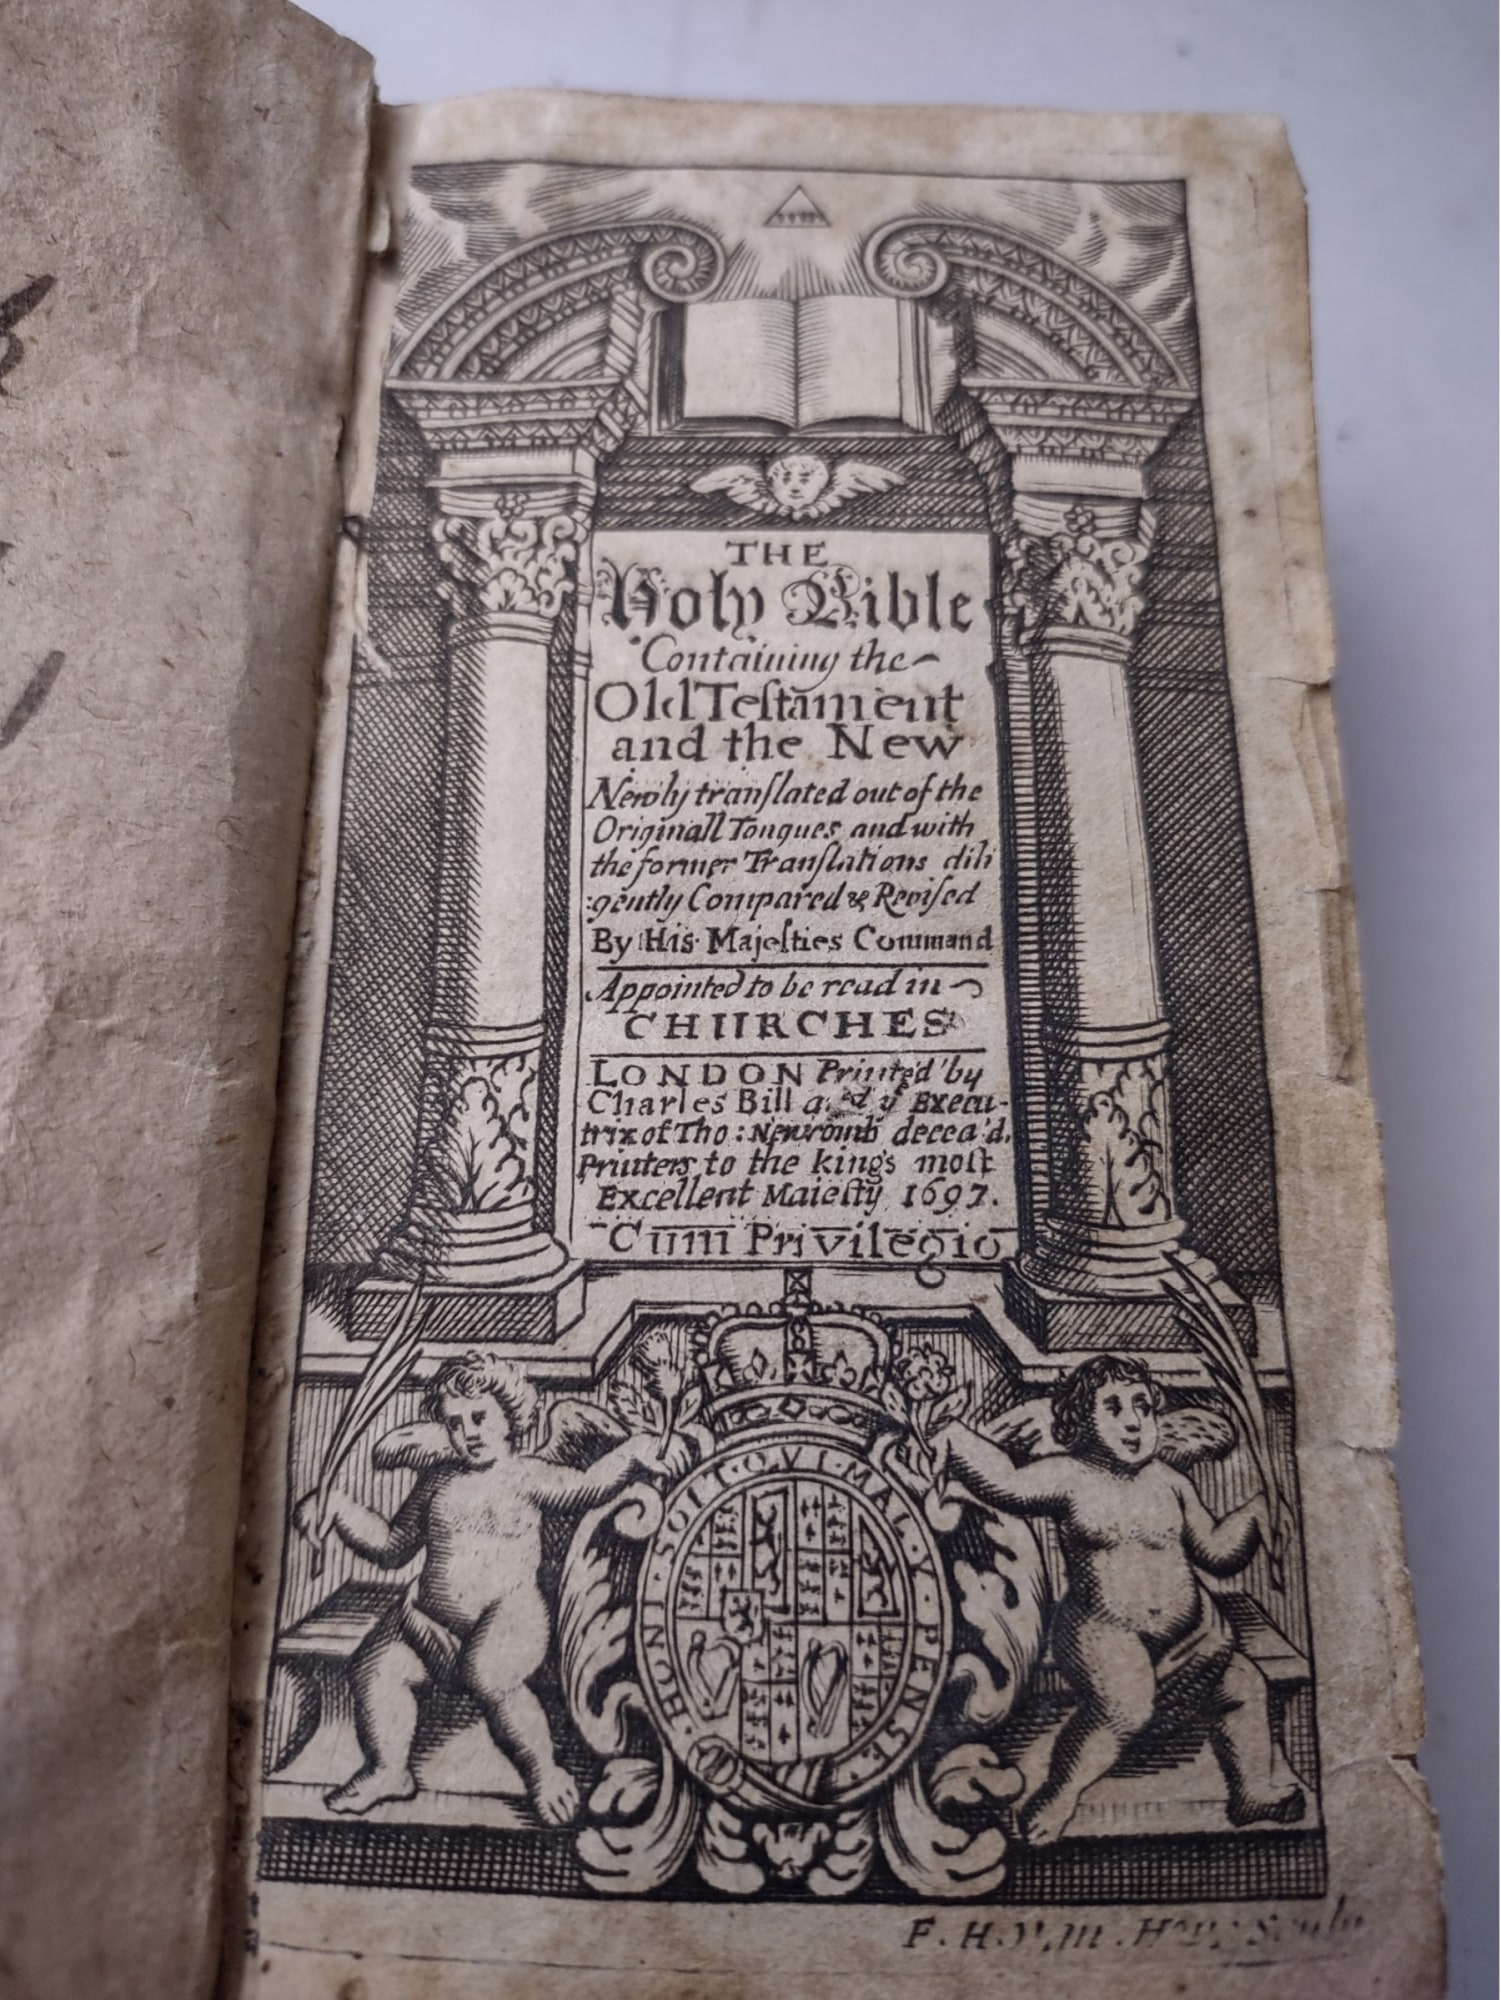 THE
Holy Bible
Containing the
Old Teſtament
and the New
Newly tranſlated out of the
Originall Tongues and with
the former Tranſlations dili
:gently Compared & Reviſed
By His Majeſties Command
Appointed to be read in
CHURCHES
LONDON Printed by
Charles Bill and yͤ Execu-
trix of Tho: Newcomb decea'd,
Printers to the kings moſt
Excellent Maieſty 1697.
Cum Privilegio
HONI·SOIT·QVI·MAL·Y·PENSE
F. H.